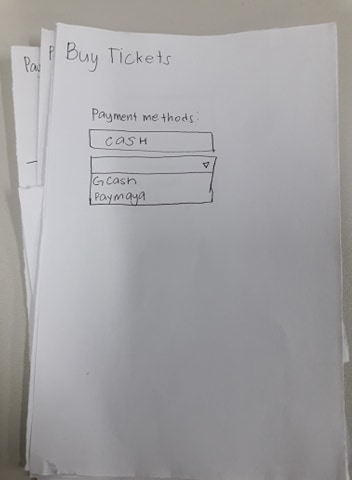 Buy Tickets
Payment methods:
CASH
Gcash
Paymaya